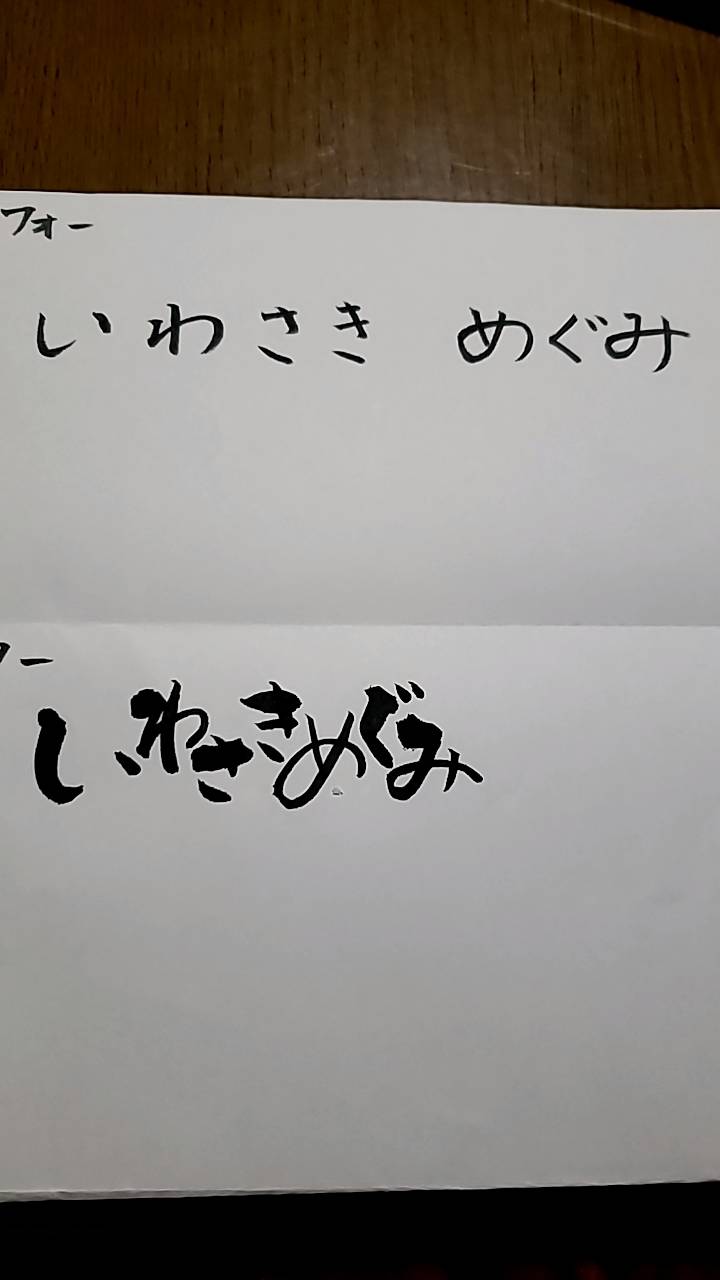 フォー
いわさき めぐみ
ター
いわさきめぐみ